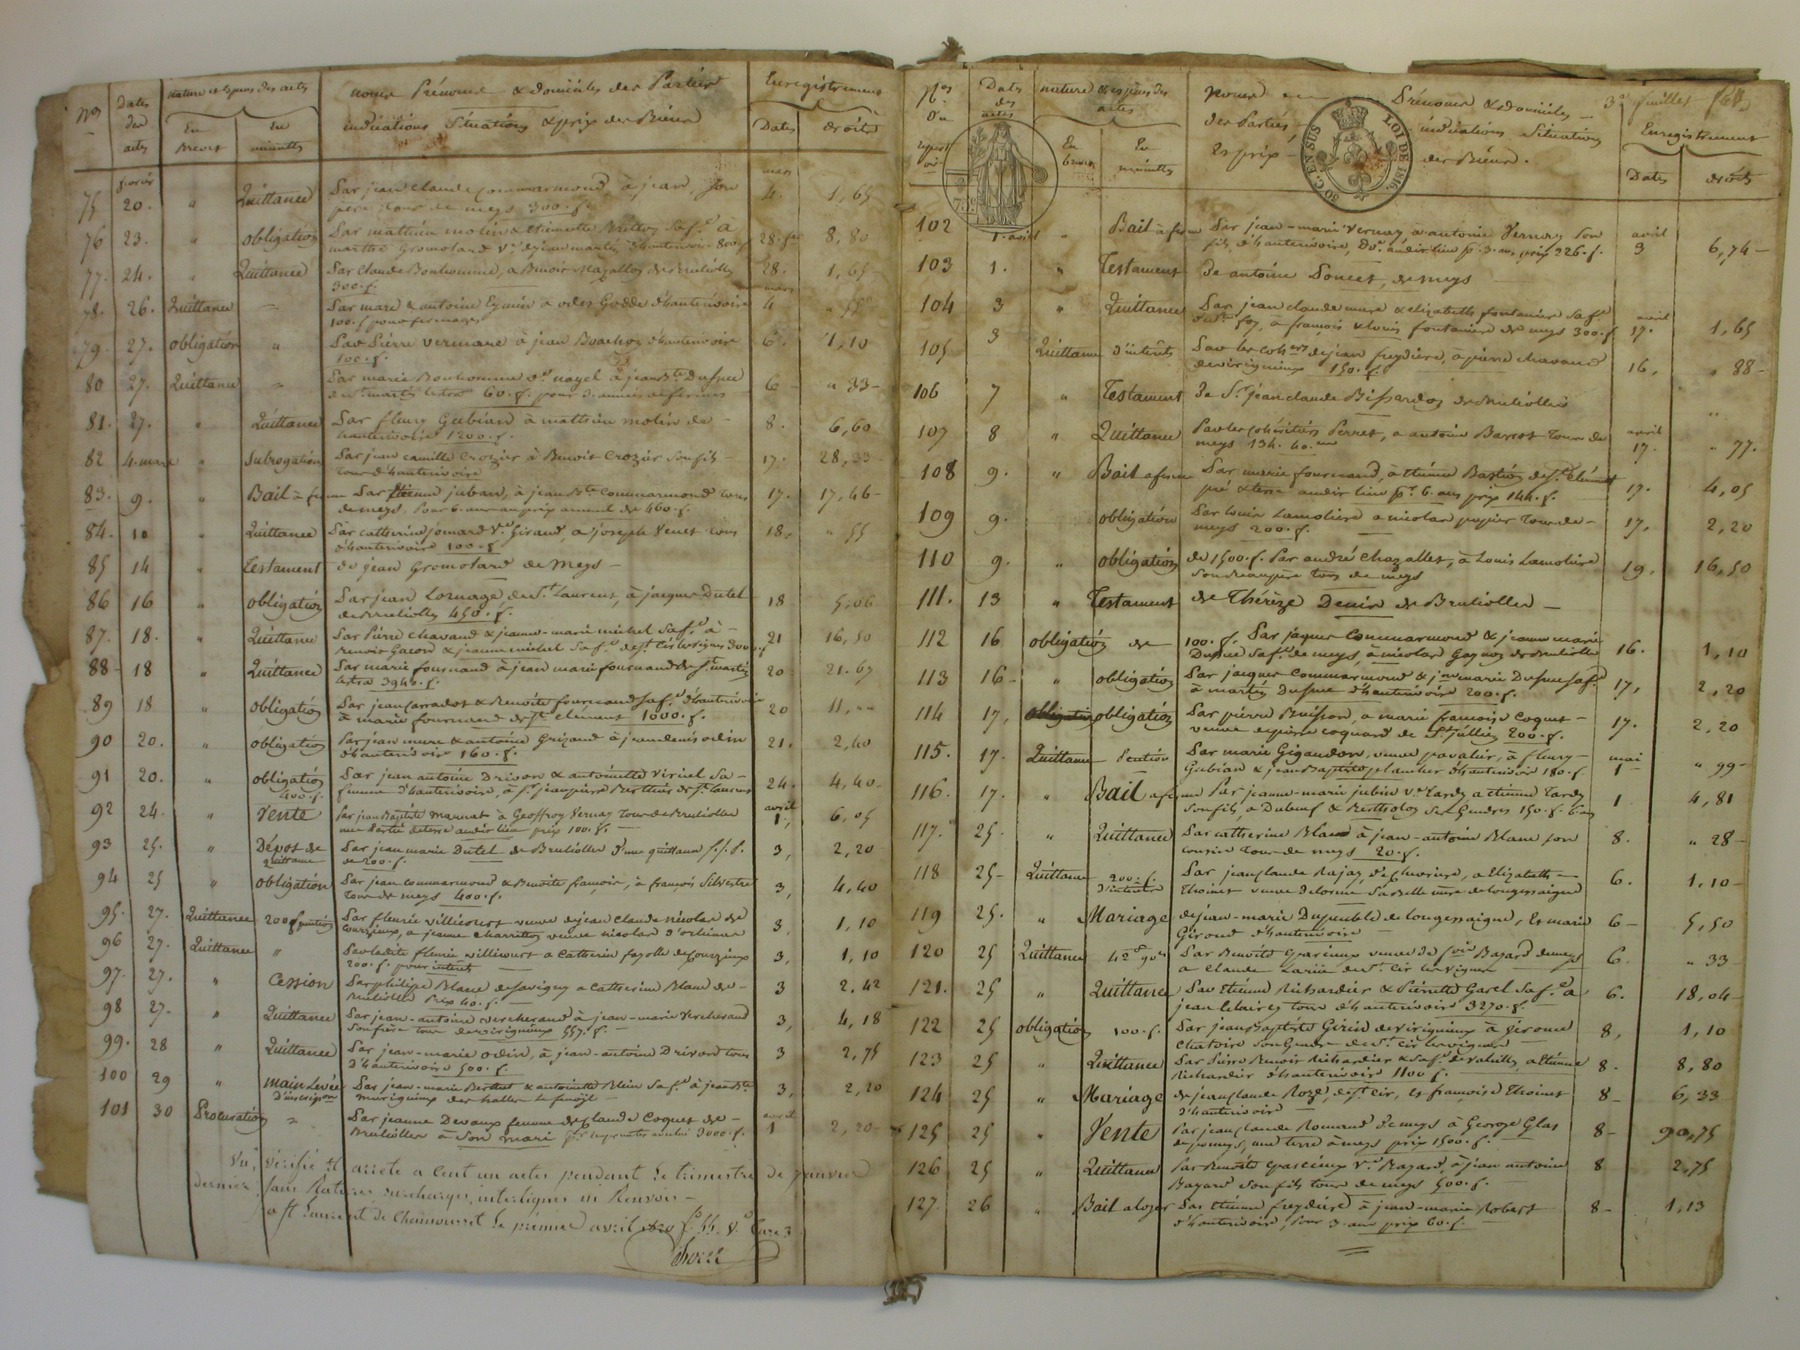 Nos Dates des actes nature et espèces des actes noms Prénoms & domiciles des Parties Enregistrement
En Brevet En minutes indications Situations & prix des Biens Dates droits
75 fevrier 20. " Quittance Par jean Claude Commarmond, à jean, son mars 4. 1,65
père tous de meys 300. f.
76 23. " obligation Par mathieu molin & Etiennette Bretton sa f.e à 28. fer 8,80
marthe Gromolard V.e d'hauterivoire 800 f
77. 24. " Quittance Par Claude Bonhomme, a Benoit Magallon de Bruliolles 28. 1,65
300. f.
78. 26. Quittance — Par marc & antoine Eymin à odet Godde d'hauterivoire mars 4 " 55
100. f pour fermages
79. 27. obligation " Par Pierre vermare à jean Bouchon d'hauterivoire 6. 1,10
100. f.
80 27. Quittance " Par marie Bonhomme V.e nayel à jean B.te Dupuy 6 " 33
de St martin 60. f. pour 3. années
81. 27. " Quittance Par fleury Gubian à mathieu molin de 8. 6,60
hauterivoire 1200. f.
82 4. mars " Subrogation Par jean camille Crozier à Benoit Crozier son fils 17. 28,33
tous d'hauterivoire
83. 9. " Bail à ferme Par Etienne juban, à jean B.te Commarmond tous 17. 17,46
de meys. Pour 6. ans au prix annuel de 460. f.
84. 10 " Quittance Par catherine jomard V.e Giraud, a joseph Venet tous 18. " 55
d'hauterivoire 100. f
85 14 " Testament de jean Gromolard de Meys —
86 16 " obligation Par jean Lornage de St. Laurent, à jacques Dutel 18 5,06
de Brulioles 450. f.
87. 18. " Quittance Par Pierre Chavand & jeanne-marie michel sa f.e à 21 16,50
Benoit Gacon & jeanne michel sa f.e de St Cir les vignes 3000 f
88 18 " Quittance Par marie fournand à jean marie fournand de St. martin 20 21.67
Lestra 3940. f.
89 18 " obligation Par jean Carradot & Benoite fournand sa f.e d'hauterivoire 20 11,--
à marie fournand de St. clement 1000. f.
90 20. " obligation Par jean mure & antoine Grizard à jean denis odin 21. 2,60
d'hauterivoire 160. f.
91 20. " obligation 400. f. Par jean antoine Drivon & antoinette viricel sa 24. 4,40
femme d'hauterivoire, à S. jean pierre Berthier de St. Laurent
92 24. " Vente Par jean Baptiste Mannat à Geoffroy Vernay tous de Brulioles avril 1. 6,05
une partie de terre au dit lieu prix 100. f.
93 25. " Dépot de quittance Par jean marie Dutel de Brulioles d'une quittance s.s.p. 3, 2,20
de 200. f.
94 25 " obligation Par jean commarmond & Benoite françois, à françois Silvestre 3, 4,40
tous de meys 400. f.
95. 27. Quittance 200 f Par fleurie villicourt veuve de jean claude nicolas de 3 1,10
courzieux, a jeanne charretton veuve nicolas d'orlienas
96 27. Quittance " Par ladite fleurie villicourt a Catherine fayolle de Courzieux 3, 1,10
200. f. pour interets
97. 27. " Cession Par philippe Blanc de Savigny a Catherine Blanc de 3 2,42
Brulioles Prix 40. f.
98 27. " Quittance Par jean-antoine vercherand à jean-marie Vercherand 3, 4,18
son frère tous de virigneux 557. f.
99. 28 " Quittance Par jean-marie odin, à jean-antoine Drivon tous 3 2,75
d'hauterivoire 500. f.
100 29 " main Levée d'inscrip.on Par jean-marie Berthet & antoinette Blein sa f.e à jean B.te 3, 2,20
murigneux des halles le fenoyl
101 30 Procuration " Par jeanne Devaux femme de Claude Coquet de avril 1 2,20
Brulioles à son mari pr. emprunter 3000. f.
Vu, vérifié & arrêté a Cent un actes pendant le trimestre de janvier
dernier, sans Ratures, surcharges, interlignes ni Renvois —
a St Laurent de Chamousset le premier avril 1820 f.º 44. V.º Case 3
Nos du repertoire Dates des actes nature & espèces des actes noms Prénoms & domiciles 3e feuillet
En Brevet En minutes des Parties, indications Situations Enregistrement
Et prix des Biens. Dates droits
50 C. EN SUS LOI DE 1816
102 1. avril " Bail à ferme Par jean-marie Vernay a antoine Vernay son avril 3 6,74
fils d'hauterivoire, de. au dit lieu pr. 3. ans prix 226. f.
103 1. " Testament de antoine Poncet, de meys
104 3 " Quittance Par jean claude mure & elizabeth fontanier sa f.e avril 17. 1,65
de Ste foy, à francois & louis fontaniere de meys 300. f
105 3 Quittance d'interêts Par les coh.ers de jean freydiere, à pierre chavand 16, " 88
de virigneux 150. f.
106 7 " Testament de S.r jean claude Bissardon de Brulioles "
107 8 " Quittance Par les cohéritiers Perret, a antoine Barrot tous de avril 17. " 77.
meys 134. 40.
108 9. " Bail a ferme Par marie fournand, à Etienne Bastion de St. Clément 17. 4,05
pré & terre au dit lieu pr. 6. ans prix 144. f.
109 9. obligation Par Louis Lamoliere a nicolas pupier tous de 17, 2,20
meys 200. f.
110 9. " obligation de 1500. f. Par andré Chazallet, à Louis Lamoliere 19. 16,50
son beaupère tous de meys
111. 13 " Testament de Thérèze Denis de Brulioles —
112 16 obligation de 100. f. Par jacques Commarmond & jeanne marie 16. 1,10
Dupuy sa f.e de meys, à nicolas Gagnon de Brulioles
113 16 " obligation Par jacques Commarmond & j.ne marie Dupuy sa f.e 17, 2,20
à martin Dupuy d'hauterivoire 200. f.
114 17, obligation obligation Par pierre Buisson, a marie françoise Coquet 17. 2,20
veuve de pierre coquard de St. Jullien 200. f.
115. 17. Quittance Par marie Gigandon, veuve pavalier, à fleury mai 1 " 99
Gubian & jean Baptiste plantier d'hauterivoire 180. f.
116. 17. " Bail a ferme Par jeanne-marie jubin V.e Tardy a etienne Tardy 1 4,81
son fils, a Dubeuf & Bertholon ses Gendres 150. f. 6. ans
117. 25. " Quittance Par catherine Blanc à jean-antoine Blanc son 8. " 28
cousin tous de meys 20. f.
118 25 Quittance 200. f. d'interets Par jean claude Rajay, de Chevrieres, a Elizabeth 6. 1,10
Thoinet veuve Delorme de longessaigne
119 25. " Mariage de jean-marie Dupeuble de longessaigne, Et marie 6 5,50
Giroud d'hauterivoire
120 25 Quittance 42 f. 90 Par Benoite Gparcieux veuve de foix Bazard de meys 6. " 33
a claude Laria de St. Cir les vignes
121. 25 " Quittance Par Etienne Richardier & Pierrette Garel sa f.e a 6. 18,04
jean Clairet tous d'hauterivoire 3270. f.
122 25 obligation 100. f. Par jean Baptiste Girin de virigneux à jerome 8, 1,10
Chatoire son Gendre de St. cir les vignes
123 25 " Quittance Par Pierre Benoit Richardier & sa f.e de valeille, a Etienne 8. 8,80
Richardier d'hauterivoire 1100 f.
124 25 " Mariage de jean claude Roze, de St Cir, et françoise Thoinet 8 6,33
d'hauterivoire
125 25 " Vente Par jean claude Romand de meys à George Glas 8 90,75
de pomeys, une terre à meys prix 1500. f.
126 25 " Quittance Par Benoite Gparcieux V.e Bazard, à jean antoine 8 2,75
Bazard son fils tous de meys 500. f.
127. 26 " Bail a loyer Par etienne freydiere à jean-marie Robert 8 1,13
d'hauterivoire, pour 3. ans prix 60. f.